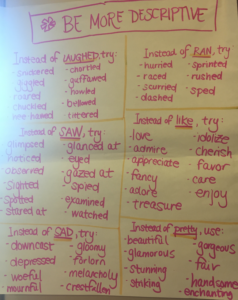 BE MORE DESCRIPTIVE
Instead of LAUGHED, try:
snickered
chortled
giggled
guffawed
roared
howled
chuckled
bellowed
hee hawed
tittered
Instead of RAN, try:
hurried
sprinted
raced
rushed
scurried
sped
dashed
Instead of SAW, try:
glimpsed
glanced at
noticed
eyed
observed
gazed at
sighted
spied
spotted
examined
stared at
watched
Instead of like, try:
love
idolize
admire
cherish
appreciate
favor
fancy
care
adore
enjoy
treasure
Instead of SAD, try:
downcast
gloomy
depressed
forlorn
woeful
melancholy
mournful
crestfallen
Instead of pretty, use:
beautiful
gorgeous
glamorous
fair
stunning
handsome
striking
enchanting